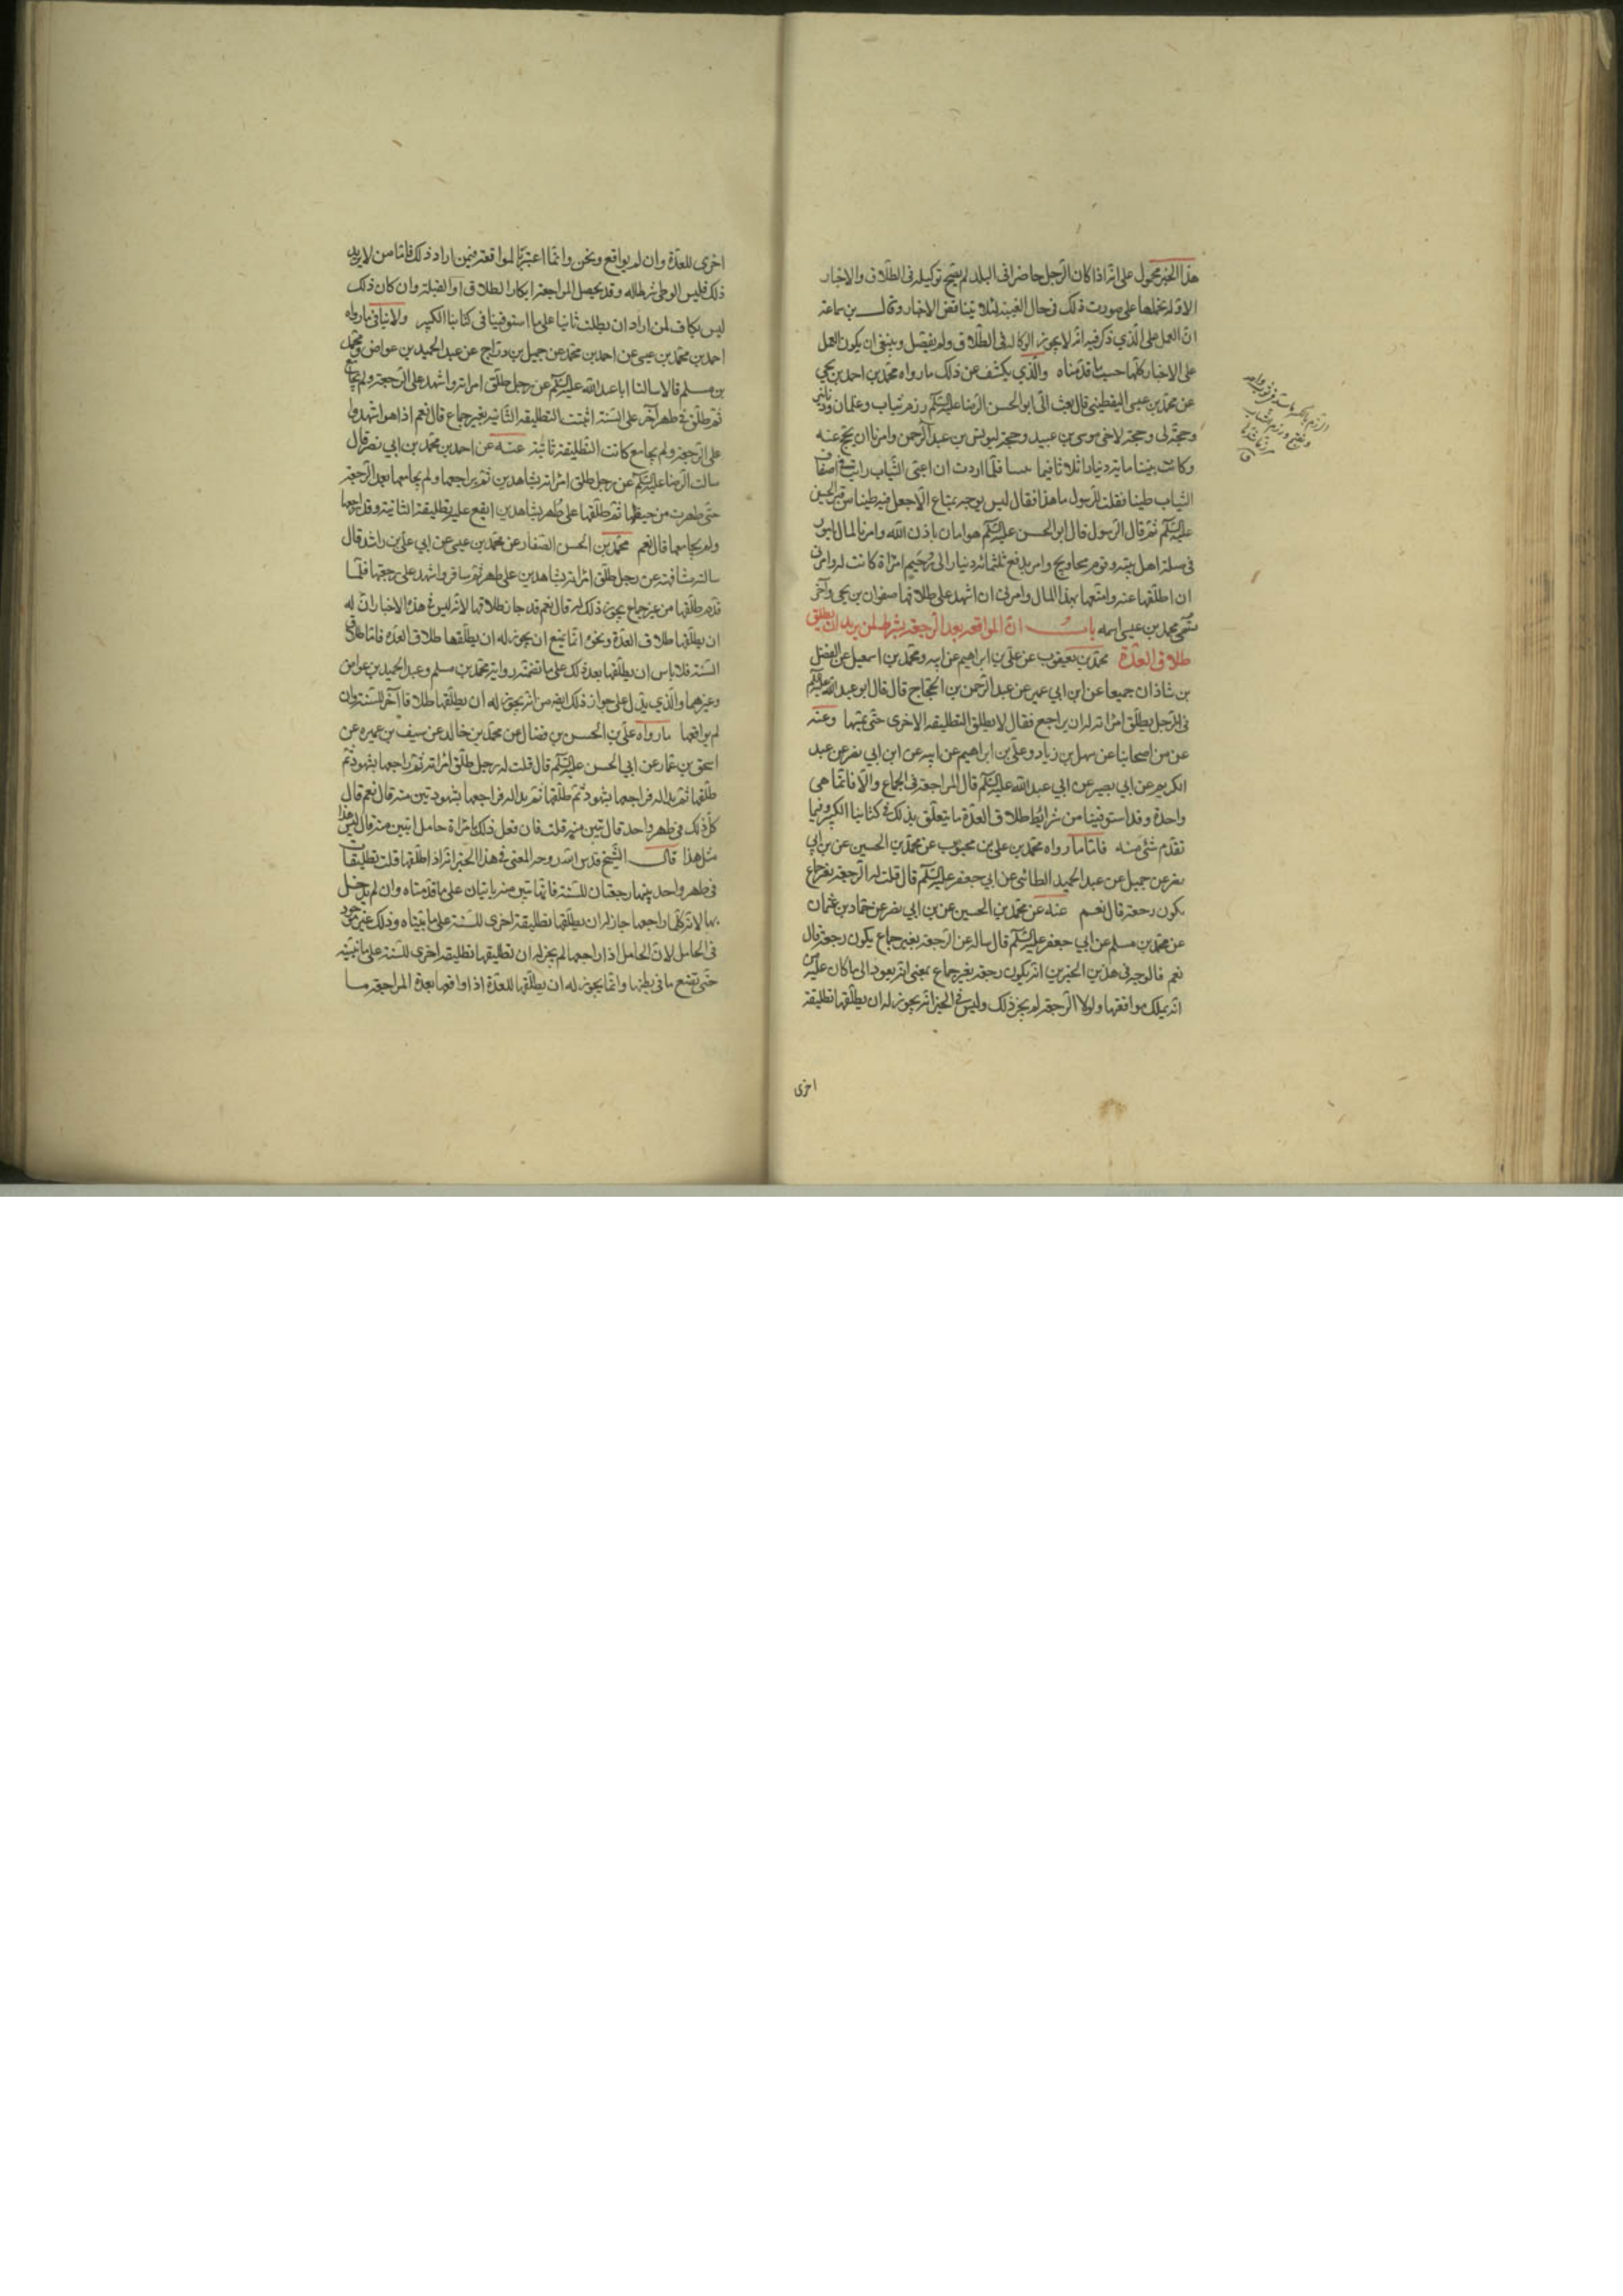 هذا الخبر محمول على انّه اذا كان الرّجل حاضرا فى البلد لم يصح توكيله فى الطّلاق والاخبار
الاوّلة نحملها على صورت ذلك فى حال الغيبة لئلا يتناقض الاخبار وقال بن سماعة
انّ العمل على الّذي ذكر فيه انّه لا يجوز الوكالة فى الطّلاق ولم يفصّل وينبغى ان يكون العمل
على الاخبار كلّها حسب ما قدّمناه والّذي يكشف عن ذلك ما رواه محمّد بن احمد بن يحيى
عن محمّد بن عيسى اليقطينى قال بعث الىّ ابو الحسن الرّضا عليه السّلم رزم ثياب وغلمان ودنانير
وحجّة لى وحجّة لاخى موسى بن عبيد وحجّة ليونس بن عبد الرّحمن وامرنا ان نحجّ عنه
وكانت بيننا ماية دينار اثلاثا فيما بيننا فلمّا اردت ان اعبّى الثّياب رايت فى اضعاف
الثّياب طينا فقلت للرّسول ما هذا فقال ليس يوجّه بمتاع الّا جعل فيه طينا من قبر الحسين
عليه السّلم ثمّ قال الرّسول قال ابو الحسن عليه السّلم هو امان باذن الله وامرنا بالمال بامور
فى صلة اهل بيته وقوم محاويج وامر بدفع ثلثمائة دينار الى رُحَيم امراة كانت له وامرنى
ان اطلّقها عنه وامتّعها بهذا المال وامرنى ان اشهد على طلاقها صفوان بن يحيى وآخر
نسى محمد بن عيسى اسمه باب انّ المواقعة بعد الرّجعة شرط لمن يريد ان يطلق
طلاق العدّة محمّد بن يعقوب عن علىّ بن ابراهيم عن ابيه ومحمّد بن اسمعيل عن الفضل
بن شاذان جميعا عن ابن ابي عمير عن عبد الرّحمن بن الحجّاج قال قال ابو عبد الله عليه السلم
فى الرّجل يطلّق امراته له ان يراجع فقال لا يطلق التطليقه الاخرى حتّى يمسّها وعنه
عن من اصحابنا عن سهل بن زياد وعلىّ بن ابراهيم عن ابيه عن ابن ابى نصر عن عبد
الكريم عن ابي بصير عن ابي عبد الله عليه السّلم قال المراجعة فى الجماع والّا فانّما هى
واحدة وقد استوفينا من شرائط طلاق العدّة ما يتعلّق بذلك فى كتابنا الكبير وفيما
تقدّم شئ منه فامّا ما رواه محمّد بن على بن محبوب عن محمّد بن الحسين عن بن ابي
نصر عن جميل عن عبد الحميد الطائى عن ابي جعفر عليه السّلم قال قلت له الرّجعة بغير جماع
يكون رجعة قال نعم عنه عن محمّد بن الحسين عن بن ابي نصر عن حمّاد بن عثمان
عن محمّد بن مسلم عن ابي جعفر عليه السّلم قال ساله عن الرّجعة بغير جماع يكون رجعة قال
نعم فالوجه فى هذين الخبرين انّه يكون رجعة بغير جماع بمعنى انّه يعود الى ما كان عليه من
انّه يملك مواقعتها ولولا الرّجعة لم يجز ذلك وليس فى الخبر انّه يجوز له ان يطلّقها تطليقة
اخرى
اخرى للعدّة وان لم يواقع ونحن وانّما اعتبرنا المواقعة فيمن اراد ذلك فامّا من لا يريد
ذلك فليس الوطى شرطا له وقد يحصل المراجعة بانكار الطلاق او القبلة وان كان ذلك
ليس بكاف لمن اراد ان يطلّق ثانيا على ما استوفينا فى كتابنا الكبير ولا ينافى ما رواه
احمد بن محمّد بن عيسى عن احمد بن محمّد عن جميل بن درّاج عن عبد الحميد بن عواض ومحمّد
بن مسلم قالا سالنا ابا عبد الله عليه السّلم عن رجل طلّق امراته واشهد على الرّجعة ولم يجامع
ثمّ طلّق فى طهر آخر على السّنة اتثبت التطليقة الثّانية بغير جماع قال نعم اذا هو اشهد
على الرّجعة ولم يجامع كانت التّطليقة ثابتة عنه عن احمد بن محمّد بن ابي نصر قال
سالت الرّضا عليه السّلم عن رجل طلق امراته بشاهدين ثمّ يراجعها ولم يجامعها بعد الرّجعة
حتّى طهرت من حيضها ثمّ طلّقها على طُهر بشاهدين ايقع عليه تطليقة الثانية وقد راجعها
ولم يجامعها قال نعم محمّد بن الحسن الصّفار عن محمّد بن عيسى عن ابي علىّ بن راشد قال
سالته مشافهة عن رجل طلّق امراته بشاهدين على طهر ثمّ سافر واشهد على رجعتها فلمّا
قدم طلّقها من غير جماع يجوز ذلك له قال نعم قد جاز طلاقها لانّه ليس فى هذه الاخبار انّ له
ان يطلّقها طلاق العدّة ونحن انّما نمنع ان يجوز له ان يطلّقها طلاق العدّه فامّا طلاق
السّنة فلا باس ان يطلّقها بعد ذلك على ما تضمّنته رواية محمّد بن مسلم وعبد الحميد بن عواض
وغيرهما والّذي يدّل على جواز ذلك ايضه من انّه يجوز له ان يطلّقها طلاقا آخر للسّنة وان
لم يواقعها ما رواه علىّ بن الحسن بن فضّال عن محمّد بن خالد عن سيف بن عميره عن
اسحق بن عمّار عن ابي الحسن عليه السّلم قال قلت له رجل طلّق امراته ثمّ راجعها بشهود ثمّ
طلّقها ثمّ بدا له فراجعها بشهود ثمّ طلّقها ثمّ بدا له فراجعها بشهود تبين منه قال نعم قال
كلّ ذلك فى طهر واحد قال تبين منه قلت فان فعل ذلك بامراة حامل اتبين منه قال ليس هذا
مثل هذا قال الشّيخ قدس الله روحه المعنى فى هذا الخبر انّه اذا طلّقها ثلث تطليقات
فى طهر واحد بينهما رجعتان للسّنة فانّما تبين منه على ما قدّمناه وان لم يدخل
بها لانّه كلّما راجعها جاز له ان يطلّقها تطليقة اخرى للسّنة على ما بيّناه وذلك غير موجود
فى الحامل لانّ الحامل اذا راجعها لم يجز له ان تطليقها تطليقة اخرى للسّنة على ما نبيّنه
حتّى تضع ما فى بطنها وانّما يجوز له ان يطلّقها للعدّة اذا واقعها بعد المراجعة ما